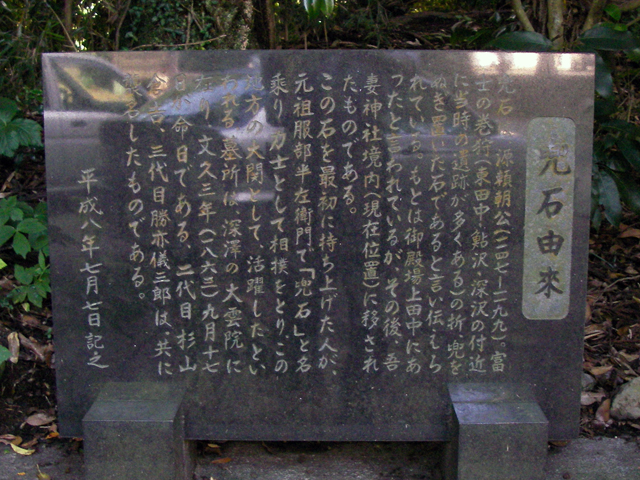 兜石由來
兜石は、源頼朝公(一一四七ー一一九九)。富
士の巻狩(東田中・鮎沢・深沢の付近
に当時の遺跡が多くある)の折、兜を
ぬぎ置いた石であると言い伝えら
れている。もとは御殿場上田中にあ
つたと言われているが、その後、吾
妻神社境内(現在位置)に移され
たものである。
この石を最初に持ち上げた人が、
元祖服部半左衛門で「兜石」と名
乗り、力士として相撲をとり、この
地方の大関として、活躍したとい
われる。墓所は、深澤の大雲院に
在り、文久三年(一八六三)九月十七
日が命日である。二代目杉山
吉、三代目勝亦儀三郎は、共に
襲名したものである。
平成八年七月七日記之